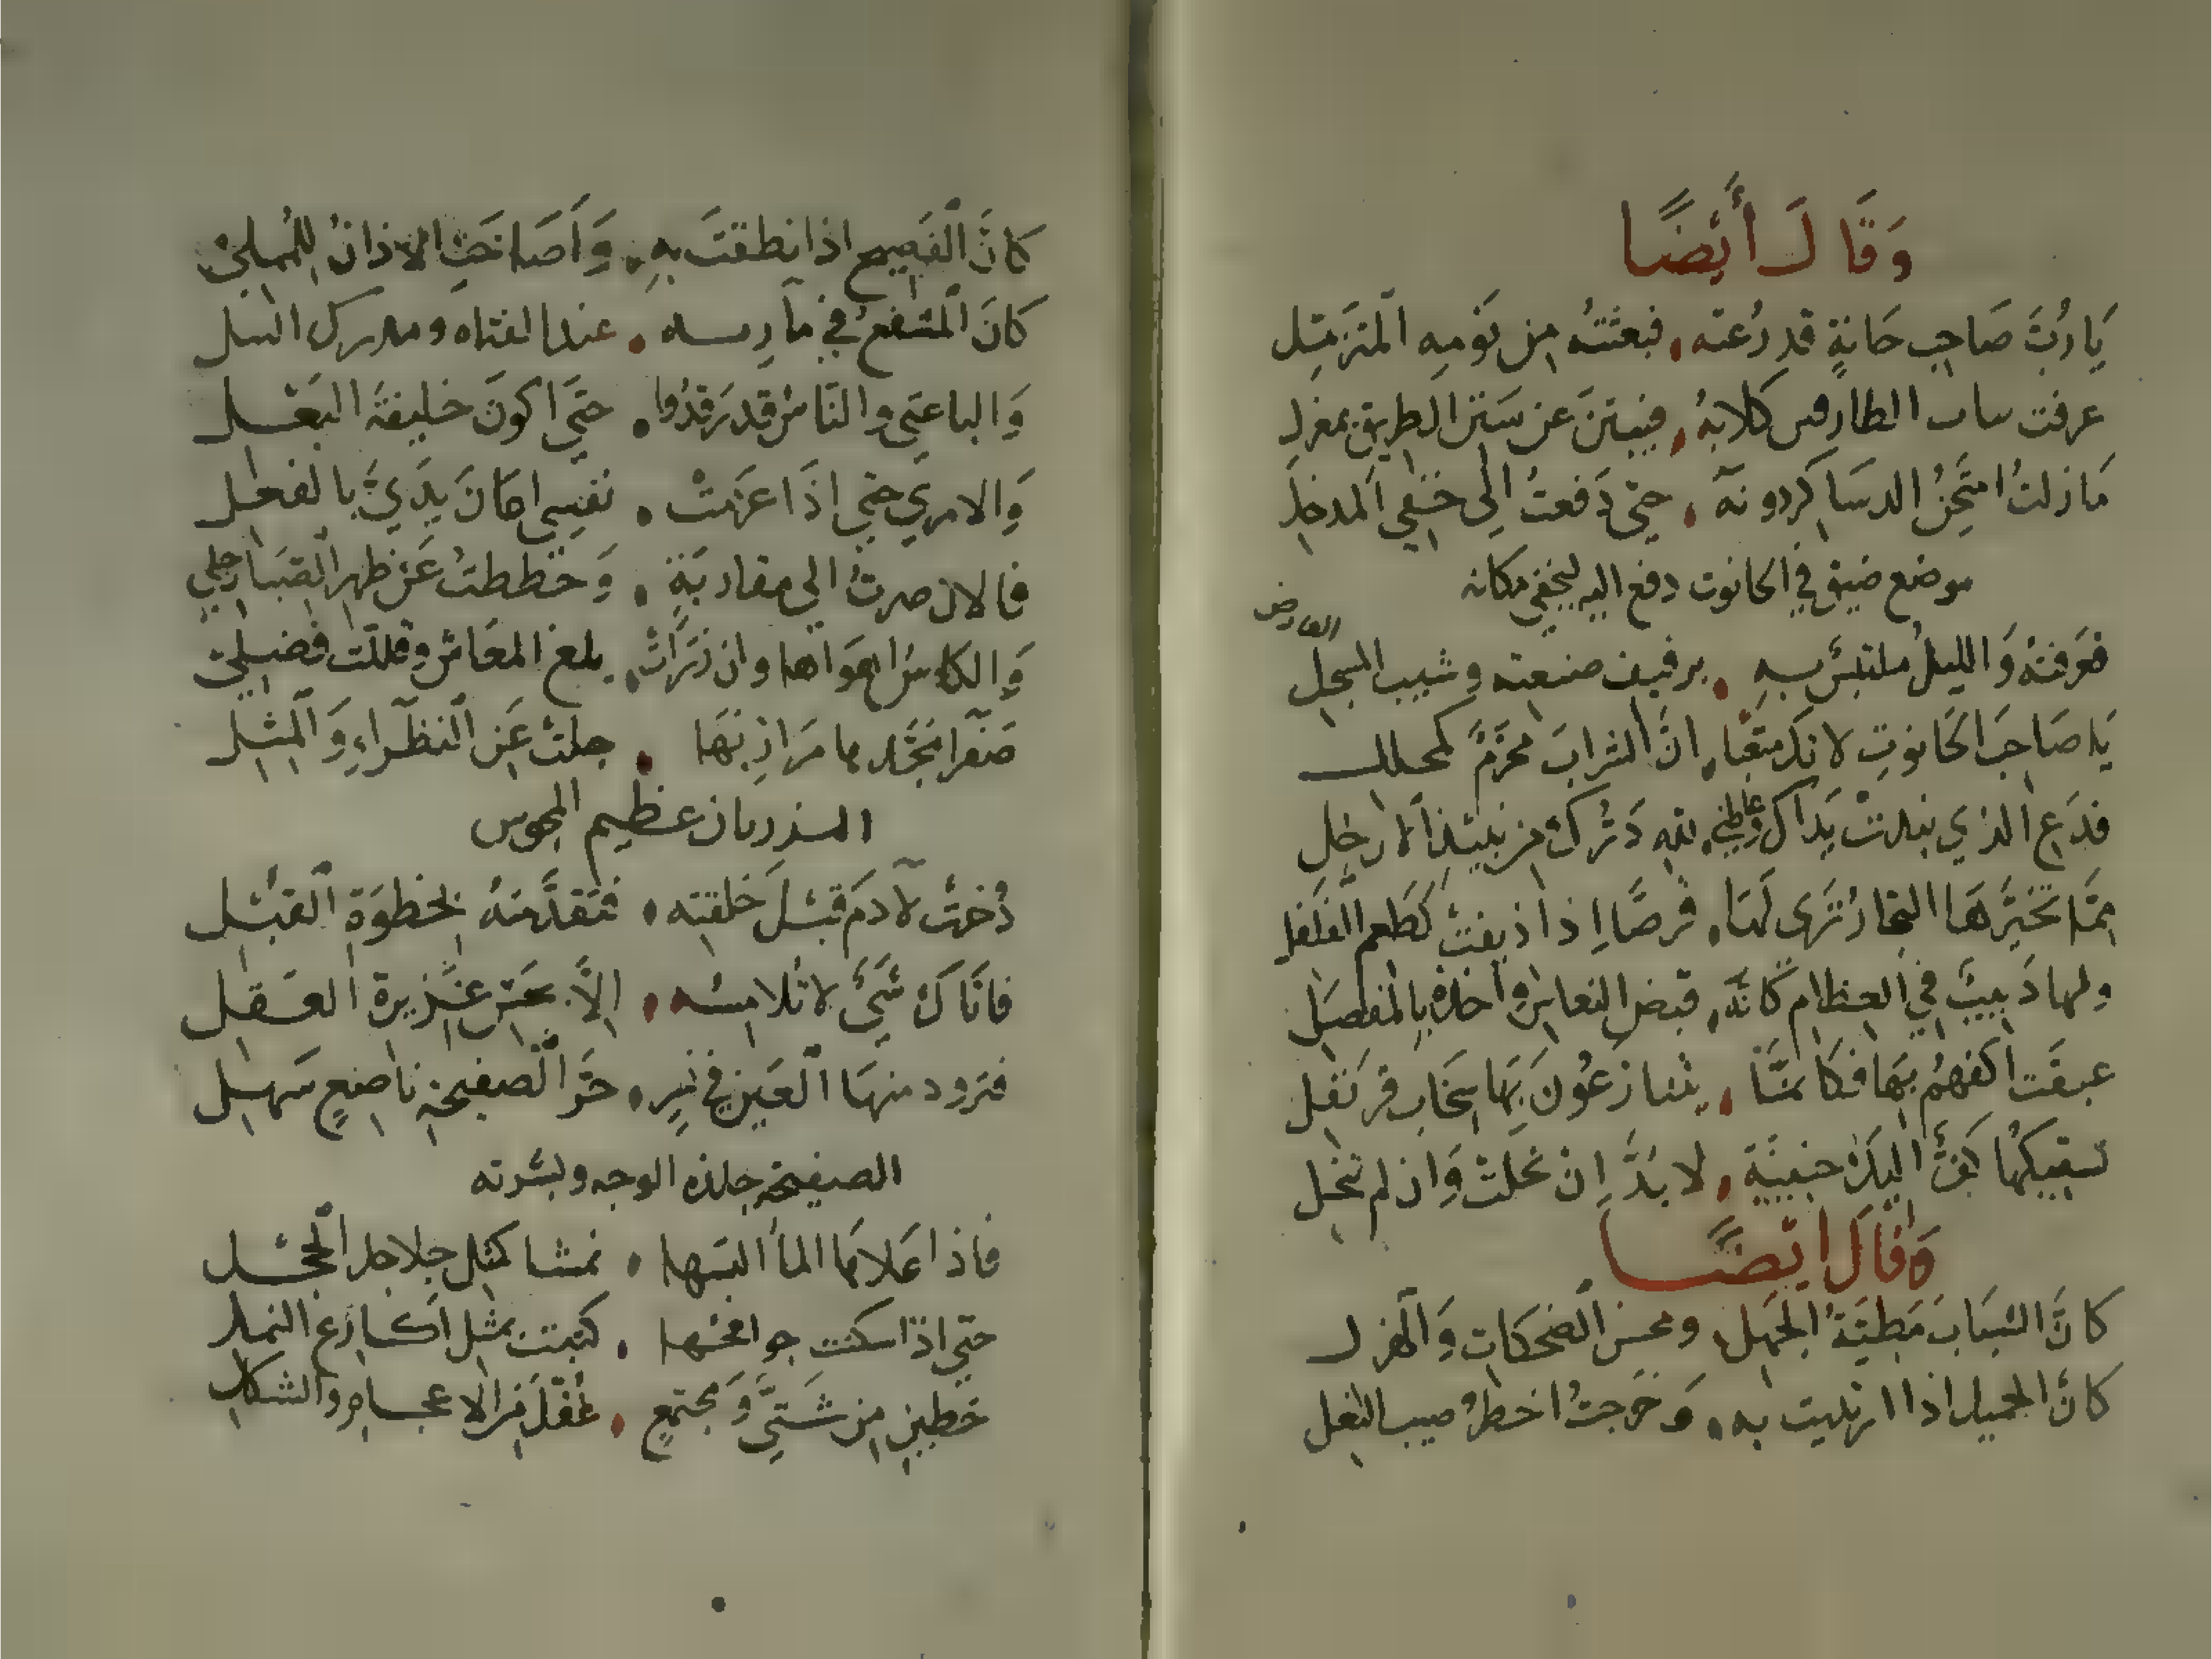 وَقَالَ أَيْضًا
يَارُبَّ صَاحِبِ حَانَةٍ قد رُعته، فبعثتُه من نَومِه المتَزمِّل
عرفت ساب الطارقين كلابهُ، فيبتنَ عن سَنَن الطريق بمعزل
مَا زلتُ امتَحِنُ الدسَاكر دونه، حتى دَفعتُ الى خفي المدخل
موضع ضيق في الحانوت دفع اليه ليخفي مكانه
فعَرفتهُ وَالليلُ ملتبسٌ بِهِ، برفيف صنعته وشيب المسحل
العارض
يَا صَاحِبَ الحَانوتِ لا تك متعَبًا، انَّ الشرابَ محرَّمٌ كمحلل
فدَعِ الذي نبذتْ يَدَاك وعاطني، لله دَرُّكَ من نبيذ الارجل
مِمَّا تَخَيَّرهَا التجارُ تَرى لهَا، قرصًا اذا ذيقت كطعم الفلفل
ولها دَبيبٌ في العظام كأنّه، قبض النعاس واخذهُ بالمفصل
عبقَت اكفهُم بهَا فكأنمَّا، يتنازعُونَ بِهَا سخَاب قرنفل
تسقيكهَا كفٌّ اليكَ حبيبة، لا بُدَّ اِنْ بخلت وَان لم تبخل
وَقَالَ ايضًا
كانَ الشبَابُ مَطيَّةُ الجَهل، ومحسن الضحكات وَالهزل
كانَ الجميل اذا ارتديت به، وَخرجتُ اخطرُ صيب النعل
كانَ الفَصِيح اذا نطقتَ بهِ، وَاَصَاخَتِ الاذانُ للمُملي
كانَ المشفعُ في مآربه، عند الفتاه ومدرك النبل
وَالباعثي والنَّاسُ قد رَقدُوا، حتَى اكونَ خليفةَ البَعْل
وَالامري حتى اذَا عزمَتْ، نفسِي اعَانَ يدَيَّ بالفعل
فالان صرتُ الى مقاربَةٍ، وَحططتُ عَن ظهر الصِبَا رَحلي
وَالكاسُ اهوَاها وان رَزَأتْ، بلغ المعَاش وقللت فضلي
صَفرا مجَّدها مرَازبهَا، جلتْ عَن النظرَاءِ وَالمِثل
المرزبان عظيم المجوس
ذُخرَتْ لآدَم قبْلَ خلقته، فتَقدَّمتهُ بخطوَةِ القبْل
فاتَاكَ شَيءٌ لا تلامسُه، اِلَّا بحسّ غَزيرة العَقل
فترود منهَا العَين في بشرٍ، حرّ الصفيحة ناصعٍ سَهل
الصفيحة جلده الوجه وبشرته
فاذا عَلاهَا المَا البسَها، نمشا كمثل جلاجل الحجل
حتى اذا سكنت جوامحُهَا، كتبت بمثل اكارع النمل
خطين من شَتَّى وَمجتمعٍ، غُفْلٌ من الاعجام والشكل